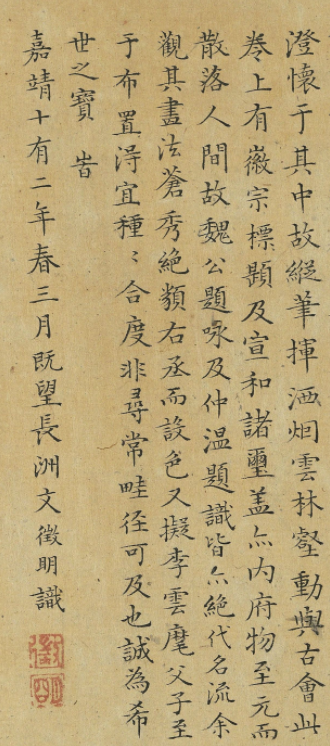 澄懷于其中故縱筆揮洒烟雲林壑動與古會此
卷上有徽宗標題及宣和諸璽盖亦内府物至元而
散落人間故魏公題咏及仲温題識皆亦絶代名流余
觀其畫法蒼秀絶類右丞而設色又擬李雲麾父子至
于布置淂宜種〻合度非尋常畦徑可及也誠為希
世之寶旹
嘉靖十有二年春三月既望長洲文徵明識